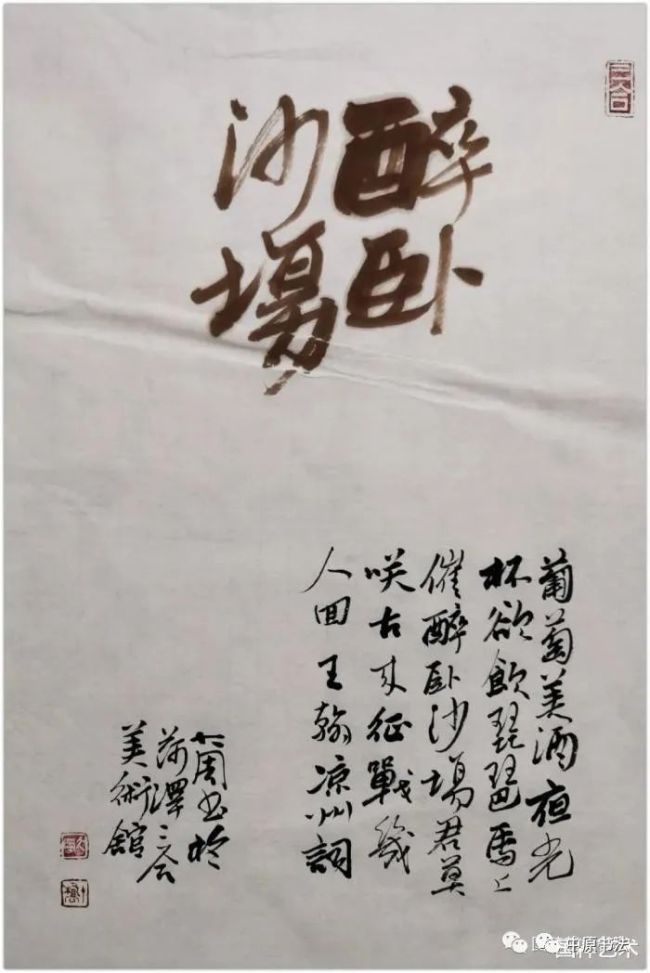 醉卧
沙場
葡萄美酒夜光
杯欲飲琵琶馬上
催醉卧沙場君莫
咲古来征戰幾
人回王翰凉州詞
周书於
菏澤三合
美術館
中原书法
国粹艺术